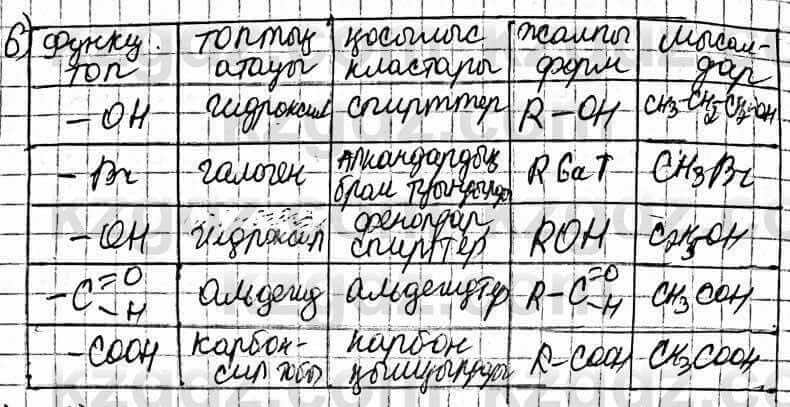 б) функц. топ | топтың атауы | қосылыс кластары | жалпы форм | мысал-дар
-OH | гидроксил | спирттер | R-OH | CH3-CH2-CH2-OH
-Br | галоген | Алкандардың бром туындылары | R Gat | CH3Br
-OH | гидроксил | фенолдар спирттер | ROH | C2H5OH
-C=O -H | альдегид | альдегидтер | R-C=O -H | CH3COH
-COOH | карбок-сил тобы | карбон қышқылдары | R-COOH | CH3COOH